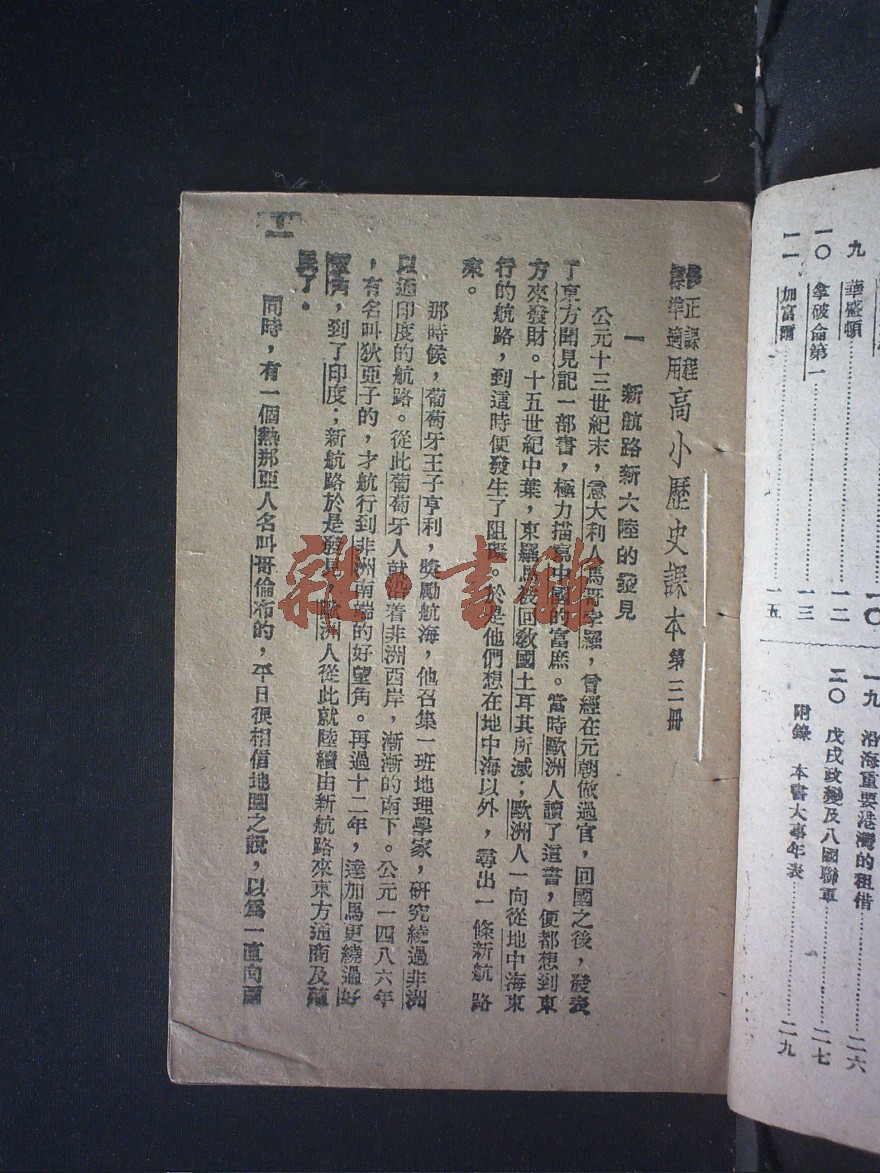 九 華盛頓 一二
一〇 拿破侖第一 一三
一一 加富爾 一五
一九 沿海重要港灣的租借 二六
二〇 戊戌政變及八國聯軍 二七
附錄 本書大事年表 二九
修正課程
標準適用 高小歷史課本 第三册
一 新航路新大陸的發見
公元十三世紀末，意大利人馬哥孛羅，曾經在元朝做過官，回國之後，發表
了東方聞見記一部書，極力描寫中國的富庶。當時歐洲人讀了這書，便都想到東
方來發財。十五世紀中葉，東羅馬被回敎國土耳其所滅；歐洲人一向從地中海東
行的航路，到這時便發生了阻礙。於是他們想在地中海以外，尋出一條新航路
來。
那時候，葡萄牙王子亨利，獎勵航海，他召集一班地理學家，研究繞過非洲
以通印度的航路。從此葡萄牙人就沿着非洲西岸，漸漸的南下。公元一四八六年
，有名叫狄亞子的，才航行到非洲南端的好望角。再過十二年，達加馬更繞過好
望角，到了印度；新航路於是發見，歐洲人從此就陸續由新航路來東方通商及殖
民了。
同時，有一個熱那亞人名叫哥倫布的，平日很相信地圓之說，以爲一直向西
雜·書館